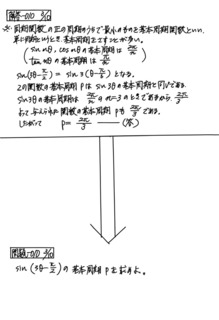 解答-010
※ 周期関数の正の周期のうちで最小のものを基本周期といい、
単に周期というとき基本周期をさすことが多い。
(sin nθ, cos nθの基本周期は 2π/n
tan nθの基本周期は π/n)
sin(3θ-π/2) = sin 3(θ-π/6) となる。
この関数の基本周期 p は sin3θの基本周期と同じである。
sin3θの基本周期は 2π/n の n=3 のときであるから、2π/3
よって与えられた関数の基本周期も 2π/3 である。
したがって p = 2π/3 (答)
問題-010
sin(3θ-π/2)の基本周期 p を求めよ。